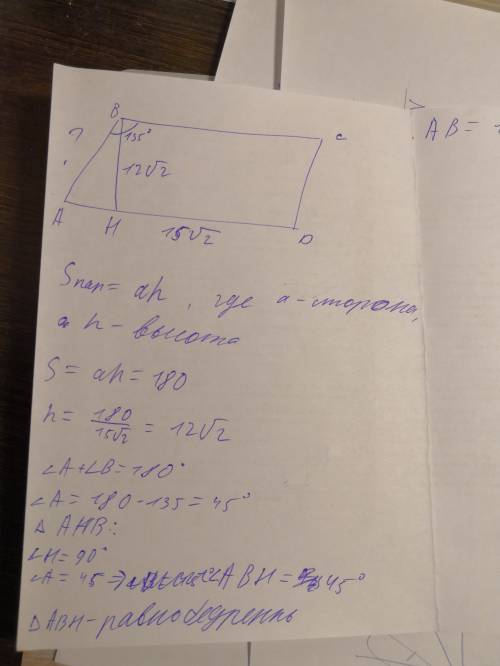 B
C
? 135°
12√2
A H 15√2 D
AB =
Sпар = ah, где a - сторона,
a h - высота
S = ah = 180
h = 180/15√2 = 12√2
∠A+∠B=180°
∠A = 180-135=45°
△ AHB:
∠H=90°
∠A = 45 ⇒ ∠ABH = 45°
△ABH-равнобедренн